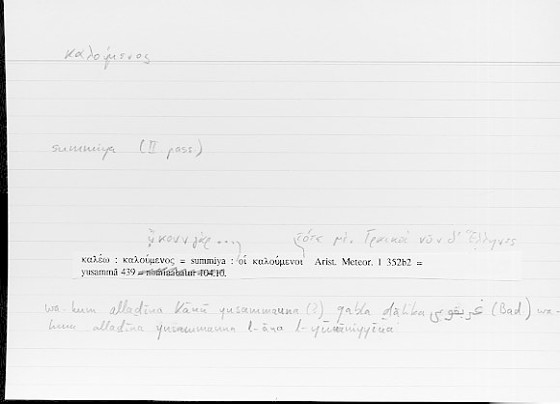 καλούμενος
summiya (II pass.)
ᾤκουν γὰρ ... τότε μὲν Γραικοὶ νῦν δ' Ἕλληνες
καλέω : καλούμενος = summiya : οἱ καλούμενοι Arist. Meteor. I 352b2 =
yusammā 439
wa-hum alladīna kānū yusammauna (?) qabla ḏālika غريقوس (Bad.) wa-
hum alladīna yusammauna l-āna l-yūnāniyyīna